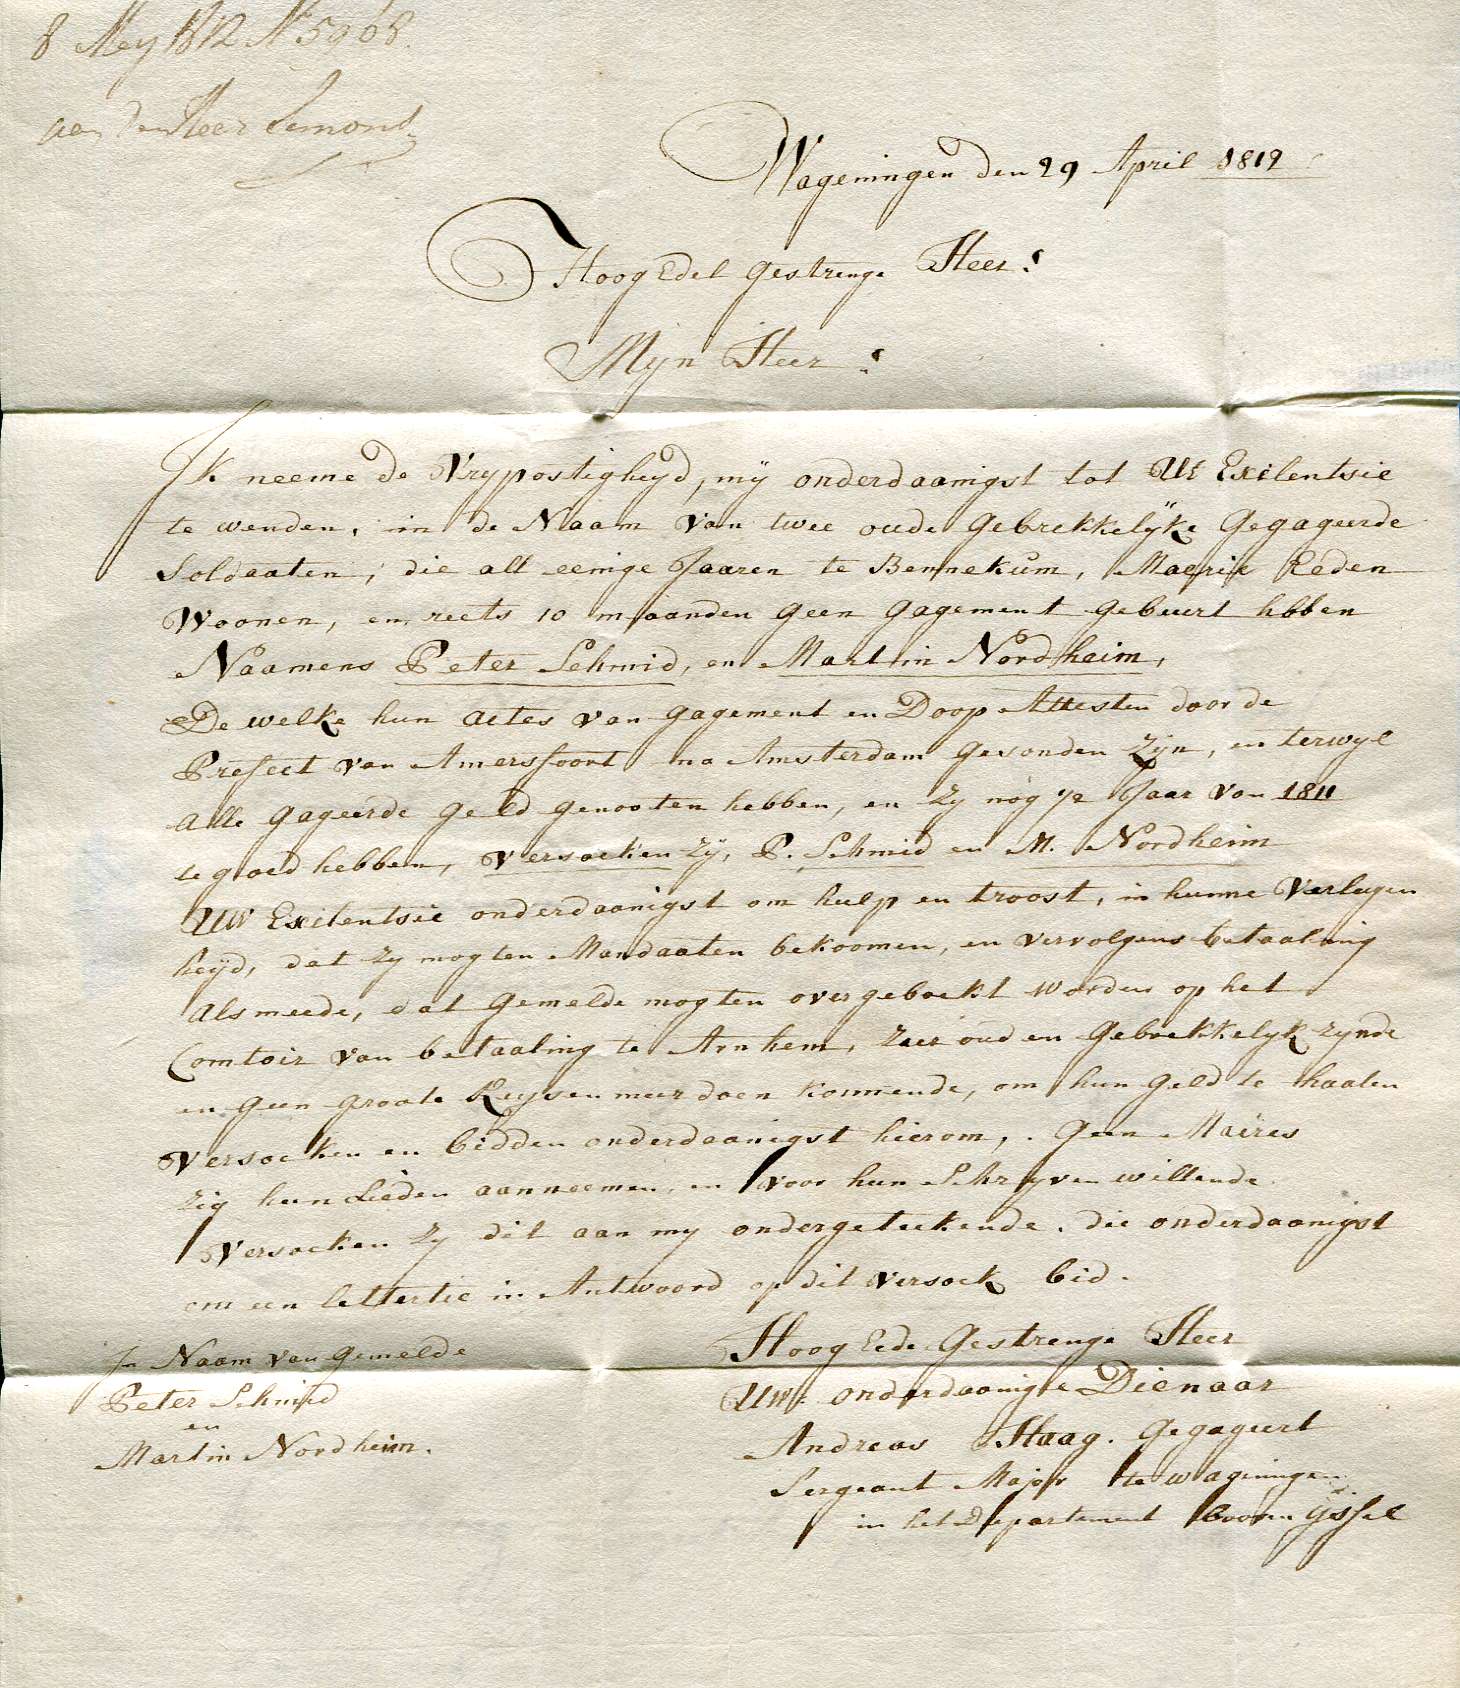 8 Mey 1812 N 5968.
aan den Heer Lemond
Wageningen den 29 April 1812
Hoog Edel Gestrenge Heer!
Mijn Heer!
Ik neeme de Vrypostigheyd, mÿ onderdaanigst tot Uw Exilentsie
te wenden, in de Naam van twee oude Gebrekkelÿke Gegageerde
Soldaaten, die all eenige Jaaren te Bennekum, Maerie Eeden
Woonen, en reets 10 maanden geen gagement gebeurt hbben
Naamens Peter Schmid, en Martin Nordheim,
De welke hun actes van gagement en Doop Attesten door de
Prefect van Amersfoort na Amsterdam gesonden Zÿn, en terwyl
alle gageerde geld genooten hebben, en Zy nog Jaar van 1811
te goed hebben, Versoeken Zÿ, P. Schmid en M. Nordheim
UW Exilentsie onderdaanigst om hulp en troost, in hunne Verleegen
heÿd, dat Zy mogten Mandaaten bekoomen, en vervolgens betaaling
als meede, dat Gemelde mogten overgeboekt worden op het
Comtoir van betaaling te Arnhem, Zeer oud en Gebrekkelyk zynde
en geen groote Reysen meer doen konnende, om hun geld te haalen
Versoeken en bidden onderdaanigst hierom, . Geen Maires
Zig hun Lieden aanneemen, en voor hun Schryven willende
Versoeken Zy dit aan my ondergeteekende. die onderdaanigst
om een lettertie in Antwoord op dit versoek bid.
Hoog Eede Gestrenge Heer
UW. onderdaanigste Dienaar
Andreas Haag. Gegageert
Sergeant Major te Wageningen
in het Departement booven Yssel
In Naam van Gemelde
Peter Schmid
en
Martin Nordheim.